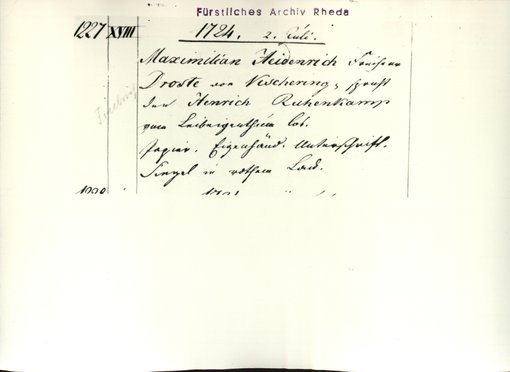 Fürstliches Archiv Rheda
1227 XVIII 1724. 2. Juli.
Maximilian Heidenrich Freiherr
Droste von Vischering, spricht
den Henrich Ruhenkamp
vom Leibeigenthum los.
Papier. Eigenhänd. Unterschrift.
Siegel in rothem Lack.